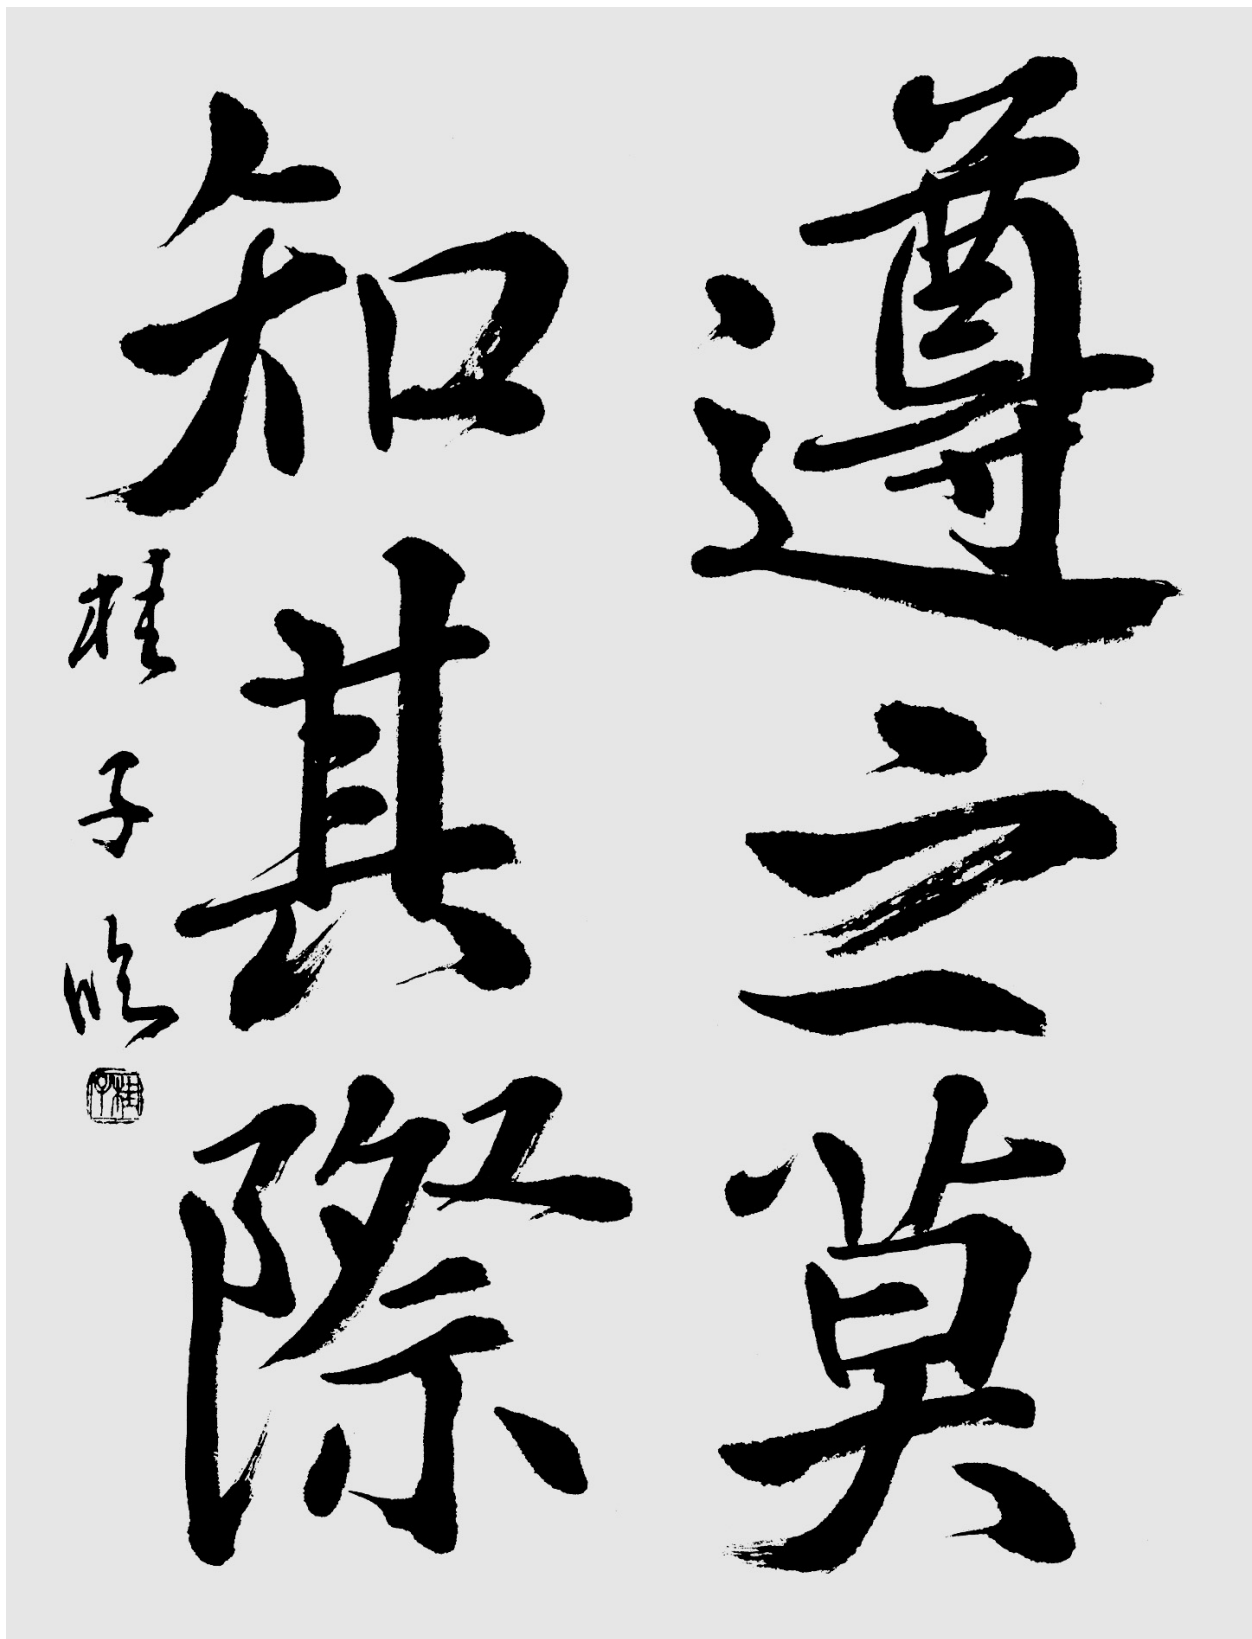 遵之莫
知其際
桂子臨
桂子